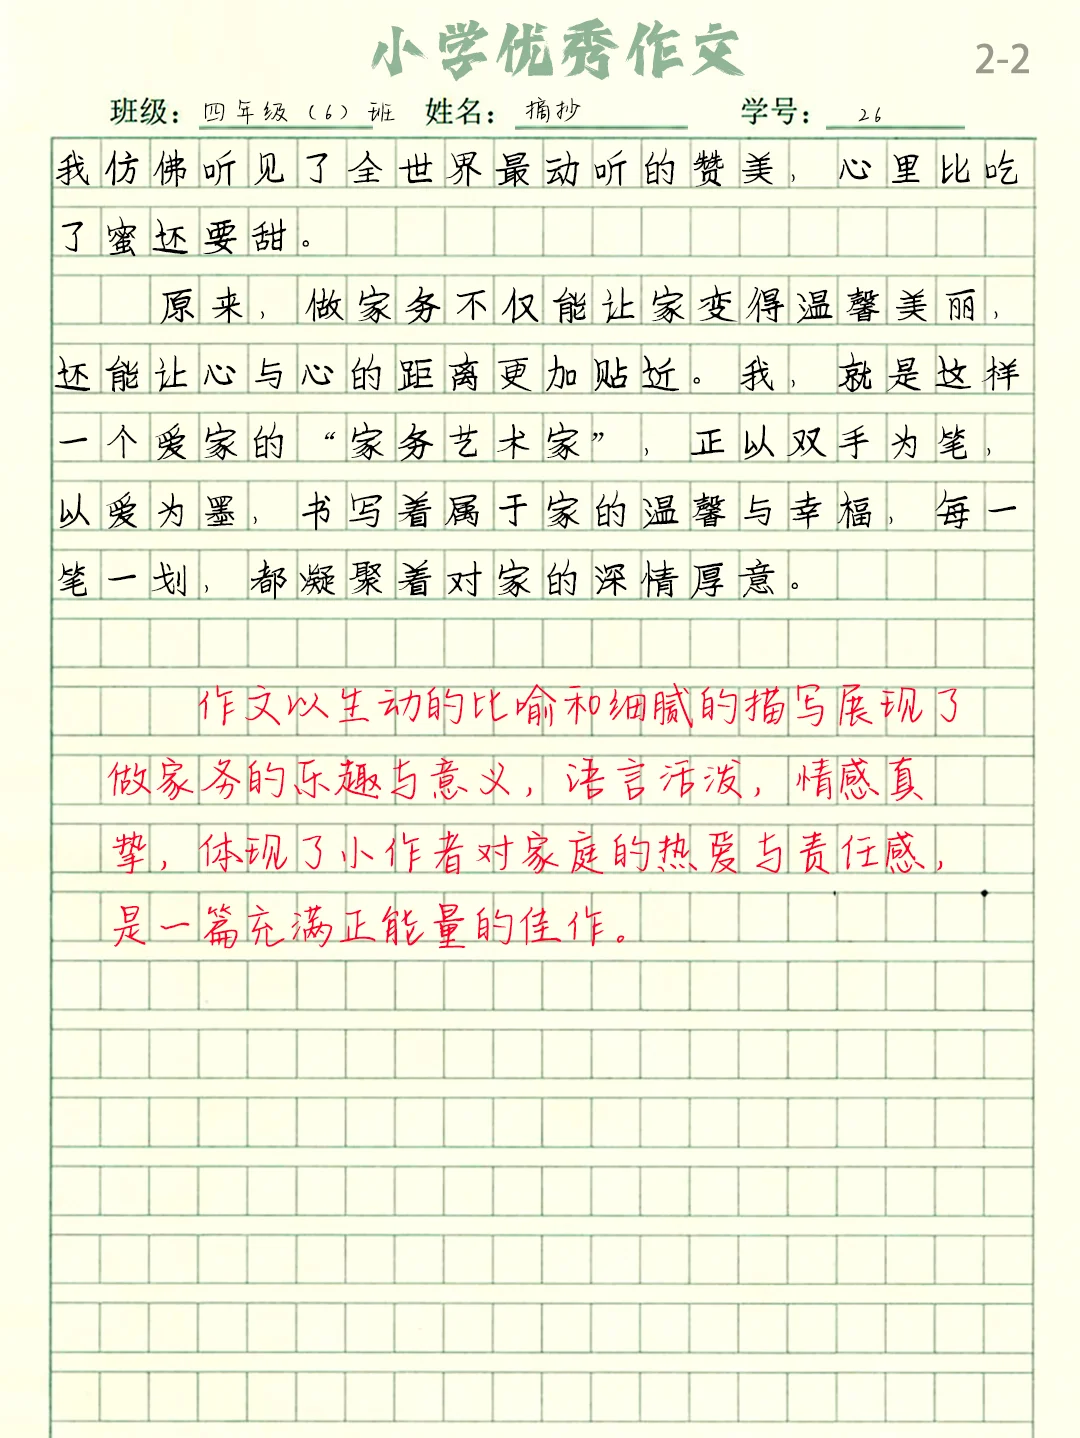 小学优秀作文
2-2
班级：四年级（6）班 姓名：摘抄 学号：26
我仿佛听见了全世界最动听的赞美，心里比吃
了蜜还要甜。
原来，做家务不仅能让家变得温馨美丽，
还能让心与心的距离更加贴近。我，就是这样
一个爱家的“家务艺术家”，正以双手为笔，
以爱为墨，书写着属于家的温馨与幸福，每一
笔一划，都凝聚着对家的深情厚意。
作文以生动的比喻和细腻的描写展现了
做家务的乐趣与意义，语言活泼，情感真
挚，体现了小作者对家庭的热爱与责任感，
是一篇充满正能量的佳作。